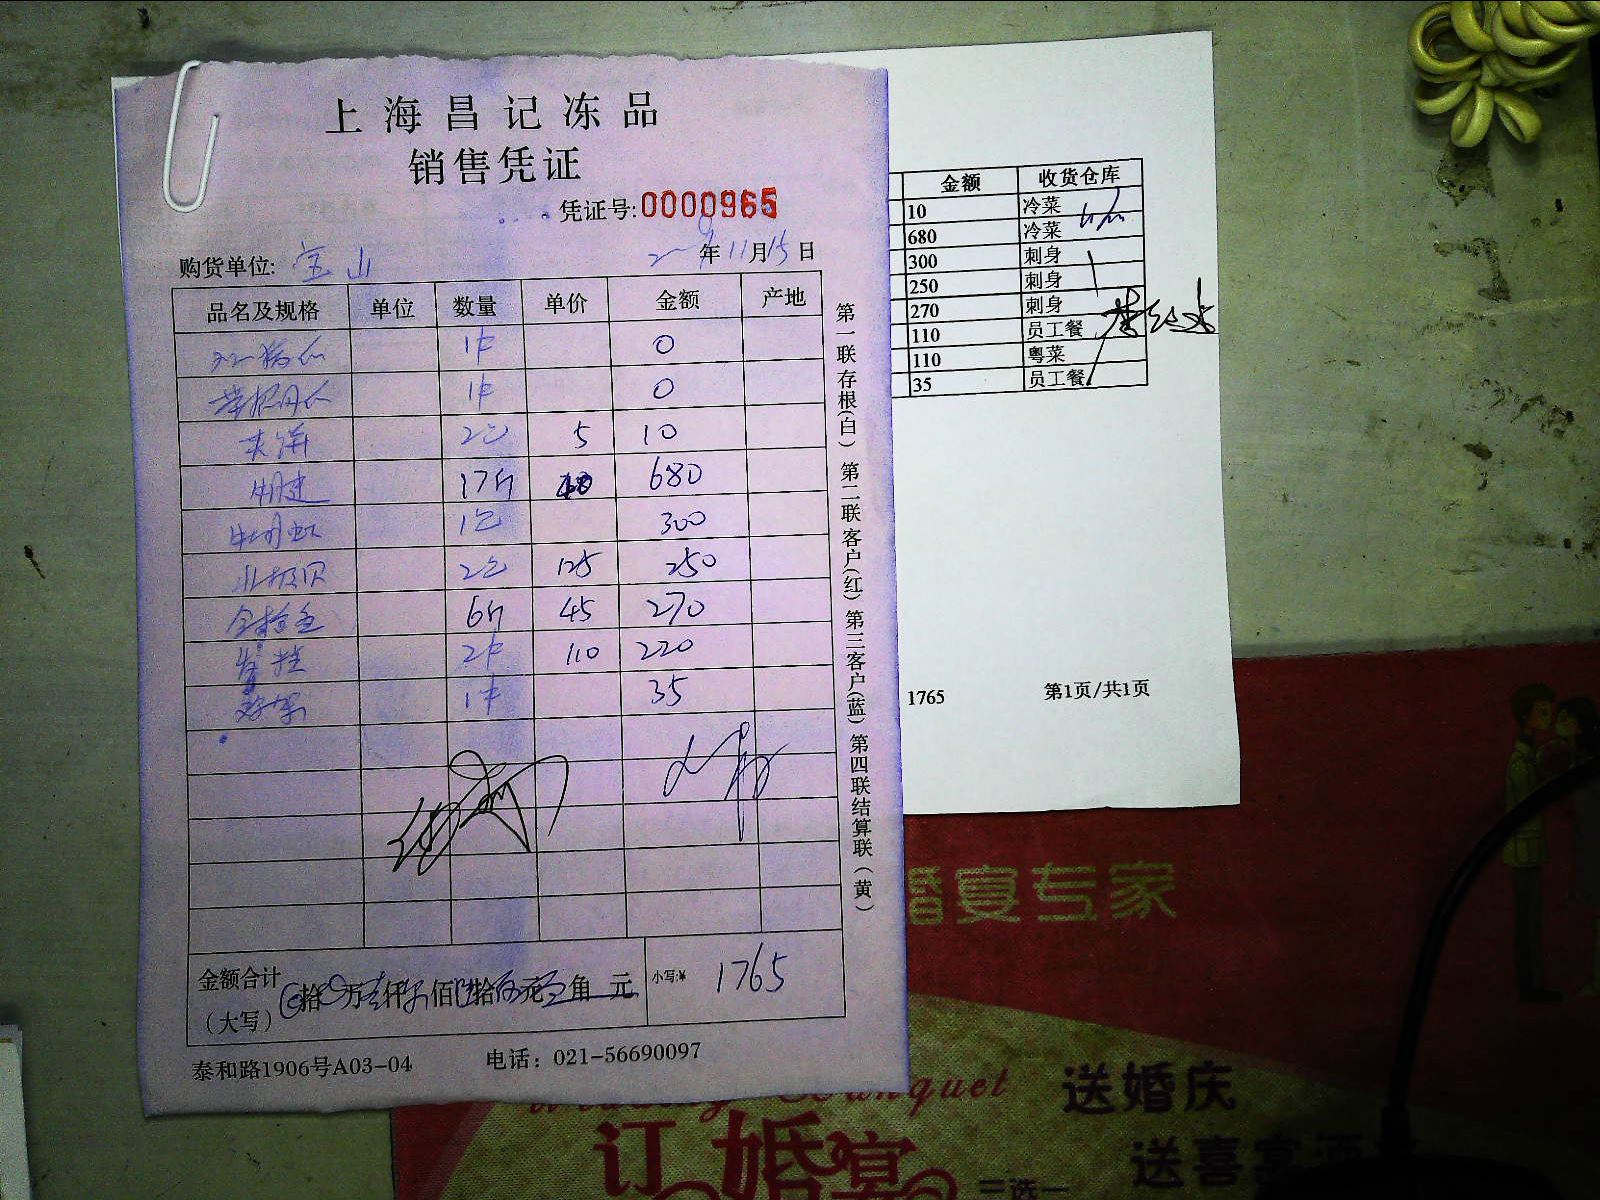 上海昌记冻品
销售凭证
凭证号:0000965
购货单位: 宝山 年11月15日
品名及规格 单位 数量 单价 金额 产地
1件 0
1件 0
夹饼 2包 5 10
17斤 680
1包 300
2包 125 250
6斤 45 270
2件 110 220
1件 35
金额合计 拾 万 仟 佰 拾 元 角 元 小写:¥ 1765
(大写)
泰和路1906号A03-04 电话: 021-56690097
第一联存根(白) 第二联客户(红) 第三客户(蓝) 第四联结算联(黄)
金额 收货仓库
10 冷菜
680 冷菜
300 刺身
250 刺身
270 刺身
110 员工餐
110 粤菜
35 员工餐
1765 第1页/共1页
婚宴专家
送婚庆
订婚宴
三选一